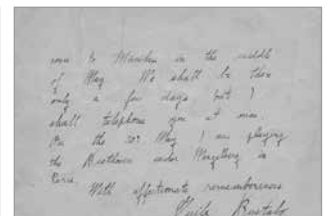 come to München in the middle
of May. We shall be there
only a few days but I
shall telephone you at once.
On the 20th May I am playing
the Beethoven under Mengelberg in
Paris.
With affectionate remembrances
Guila Bustabo